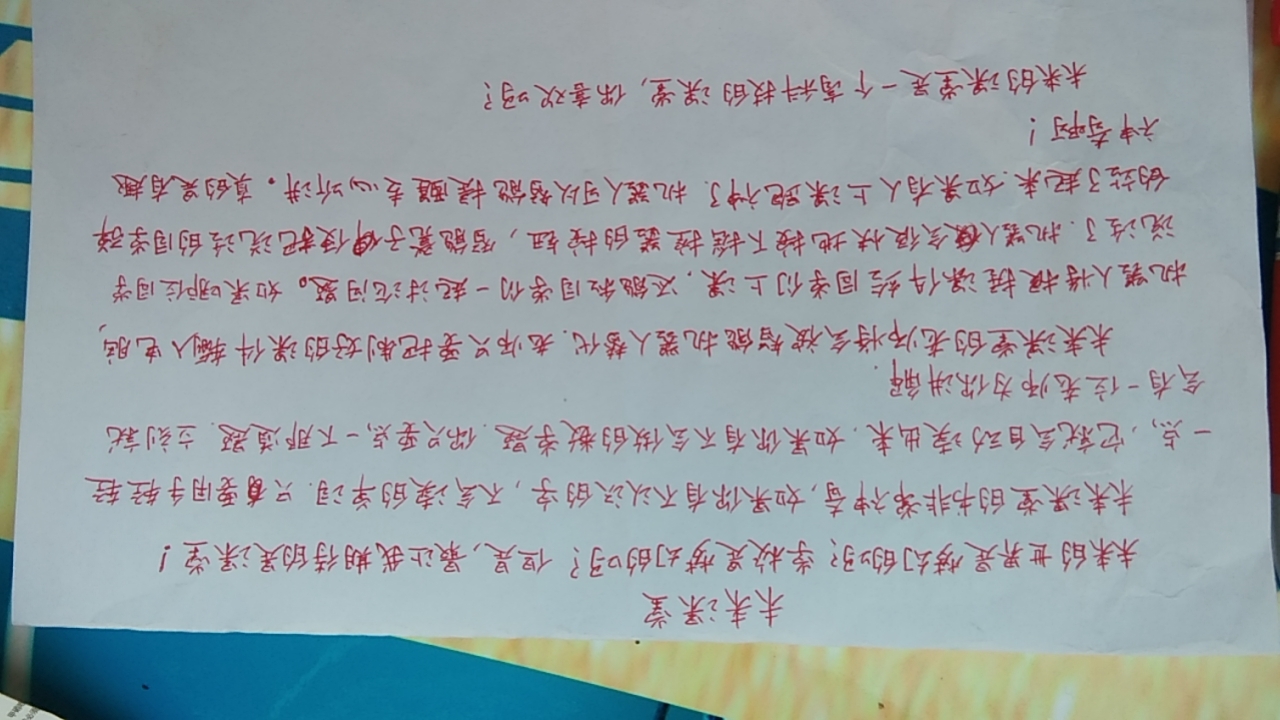 未来课堂
未来的世界是梦幻的吗?学校是梦幻的吗?但是,最让我期待的是课堂!
未来课堂的书非常神奇,如果你有不认识的字,不会读的单词.只要用手轻轻
一点,它就会自动读出来.如果你有不会做的数学题.你只要点一下那道题.立刻就
会有一位老师为你讲解.
未来课堂的老师将会被智能机器人替代.老师只要把制好的课件输入电脑,
机器人将根据课件给同学们上课,还能和同学们一起讨论问题。如果哪位同学
说话了.机器人会很快地按下摇控器的按钮,智能凳子便把说话的同学弹
的站了起来.如果有人上课跑神了.机器人可以智能提醒去心听讲。真的是有趣
神奇啊!
未来的课堂是一个高科技的课堂,你喜欢吗?